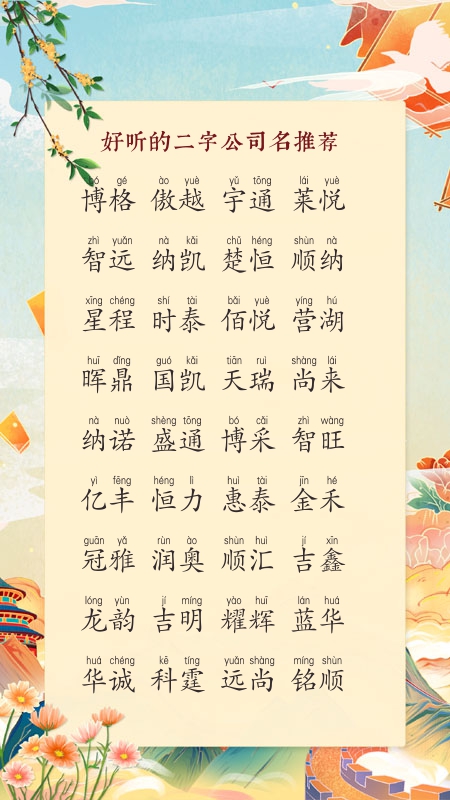 好听的二字公司名推荐
bó gé ào yuè yǔ tōng lái yuè
博格 傲越 宇通 莱悦
zhì yuǎn nà kǎi chǔ héng shùn nà
智远 纳凯 楚恒 顺纳
xīng chéng shí tài bǎi yuè yíng hú
星程 时泰 佰悦 营湖
huī dǐng guó kǎi tiān ruì shàng lái
晖鼎 国凯 天瑞 尚来
nà nuò shèng tōng bó cǎi zhì wàng
纳诺 盛通 博采 智旺
yì fēng héng lì huì tài jīn hé
亿丰 恒力 惠泰 金禾
guān yǎ rùn ào shùn huì jí xīn
冠雅 润奥 顺汇 吉鑫
lóng yùn jí míng yào huī lán huá
龙韵 吉明 耀辉 蓝华
huá chéng kē tíng yuǎn shàng míng shùn
华诚 科霆 远尚 铭顺